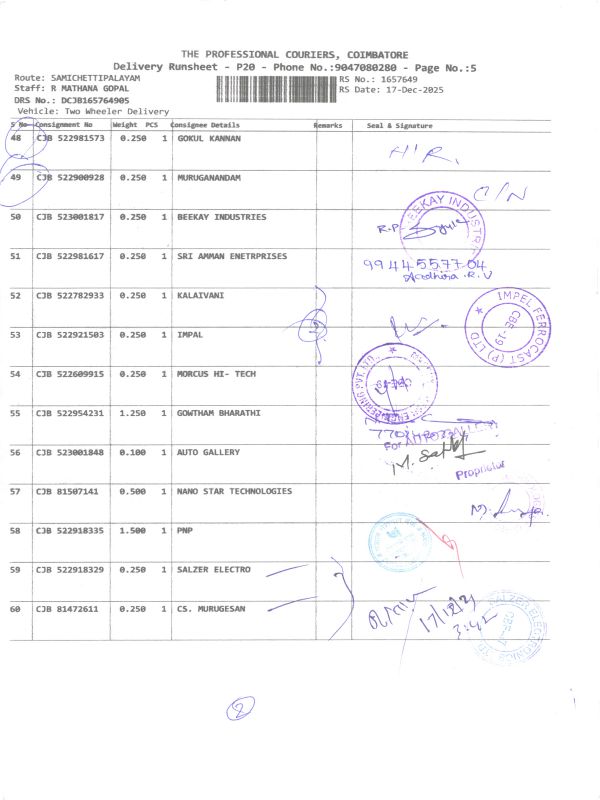 THE PROFESSIONAL COURIERS, COIMBATORE
Delivery Runsheet - P20 - Phone No.:9047080280 - Page No.:5
Route: SAMICHETTIPALAYAM
RS No.: 1657649
Staff: R MATHANA GOPAL
RS Date: 17-Dec-2025
DRS No.: DCJB165764905
Vehicle: Two Wheeler Delivery
S No Consignment No Weight PCS Consignee Details Remarks Seal & Signature
48 CJB 522981573 0.250 1 GOKUL KANNAN
49 CJB 522900928 0.250 1 MURUGANANDAM
O/N
50 CJB 523001817 0.250 1 BEEKAY INDUSTRIES
BEEKAY INDUSTR
R.P
51 CJB 522981617 0.250 1 SRI AMMAN ENETRPRISES
99445 57704
R.V
52 CJB 522782933 0.250 1 KALAIVANI
53 CJB 522921503 0.250 1 IMPAL
IMPEL FERROCAST (P) LTD
CBE-19
2
54 CJB 522609915 0.250 1 MORCUS HI- TECH
55 CJB 522954231 1.250 1 GOWTHAM BHARATHI
For
56 CJB 523001848 0.100 1 AUTO GALLERY
Proprietor
57 CJB 81507141 0.500 1 NANO STAR TECHNOLOGIES
58 CJB 522918335 1.500 1 PNP
59 CJB 522918329 0.250 1 SALZER ELECTRO
60 CJB 81472611 0.250 1 CS. MURUGESAN
17/12/2
3:42
SALZER ELECTRONICS LTD
2